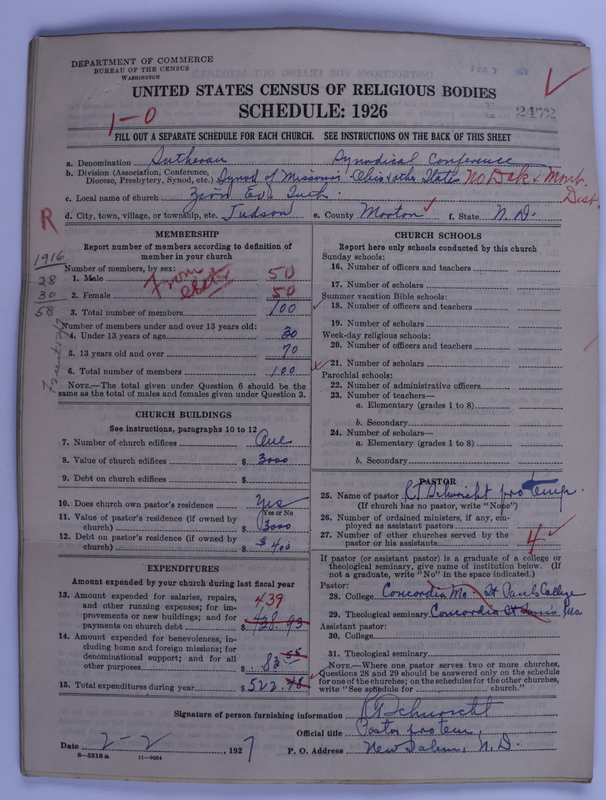 DEPARTMENT OF COMMERCE
BUREAU OF THE CENSUS
WASHINGTON
FEB 7
UNITED STATES CENSUS OF RELIGIOUS BODIES
SCHEDULE: 1926
1-0
2472
FILL OUT A SEPARATE SCHEDULE FOR EACH CHURCH. SEE INSTRUCTIONS ON THE BACK OF THIS SHEET
a. Denomination Lutheran Synodical Conference
b. Division (Association, Conference, Diocese, Presbytery, Synod, etc.) Synod of Missouri Ohio & other States No Dak & Mont. Dist.
c. Local name of church Zion Ev. Luth.
d. City, town, village, or township, etc. Judson e. County Morton f. State N. D.
R
MEMBERSHIP
Report number of members according to definition of member in your church
1916
28
30
58
Number of members, by sex:
1. Male 50
2. Female 50
From
3. Total number of members 100
Number of members under and over 13 years old:
4. Under 13 years of age 30
5. 13 years old and over 70
6. Total number of members 100
NOTE.—The total given under Question 6 should be the same as the total of males and females given under Question 3.
CHURCH BUILDINGS
See instructions, paragraphs 10 to 12
7. Number of church edifices One
8. Value of church edifices $ 3000
9. Debt on church edifices $
10. Does church own pastor's residence Yes
Yes or No
11. Value of pastor's residence (if owned by church) $ 3000
12. Debt on pastor's residence (if owned by church) $ 400
EXPENDITURES
Amount expended by your church during last fiscal year
13. Amount expended for salaries, repairs, and other running expenses; for improvements or new buildings; and for payments on church debt $ 438.93
439
14. Amount expended for benevolences, including home and foreign missions; for denominational support; and for all other purposes $ 83 55
15. Total expenditures during year $ 522.48
CHURCH SCHOOLS
Report here only schools conducted by this church
Sunday schools:
16. Number of officers and teachers
17. Number of scholars
Summer vacation Bible schools:
18. Number of officers and teachers
19. Number of scholars
Week-day religious schools:
20. Number of officers and teachers
21. Number of scholars
Parochial schools:
22. Number of administrative officers
23. Number of teachers—
a. Elementary (grades 1 to 8)
b. Secondary
24. Number of scholars—
a. Elementary (grades 1 to 8)
b. Secondary
PASTOR
25. Name of pastor pro temp.
(If church has no pastor, write "None")
26. Number of ordained ministers, if any, employed as assistant pastors
27. Number of other churches served by the pastor or his assistants 4
If pastor (or assistant pastor) is a graduate of a college or theological seminary, give name of institution below. (If not a graduate, write "No" in the space indicated.)
Pastor:
28. College Concordia Mo. St Pauls College
29. Theological seminary Concordia St Louis Mo
Assistant pastor:
30. College
31. Theological seminary
NOTE.—Where one pastor serves two or more churches, Questions 28 and 29 should be answered only on the schedule for one of the churches; on the schedules for the other churches, write "See schedule for church."
Signature of person furnishing information
Official title Pastor pro tem.
Date 2-2, 1927
P. O. Address New Salem, N. D.
8—5518 a 11—9054